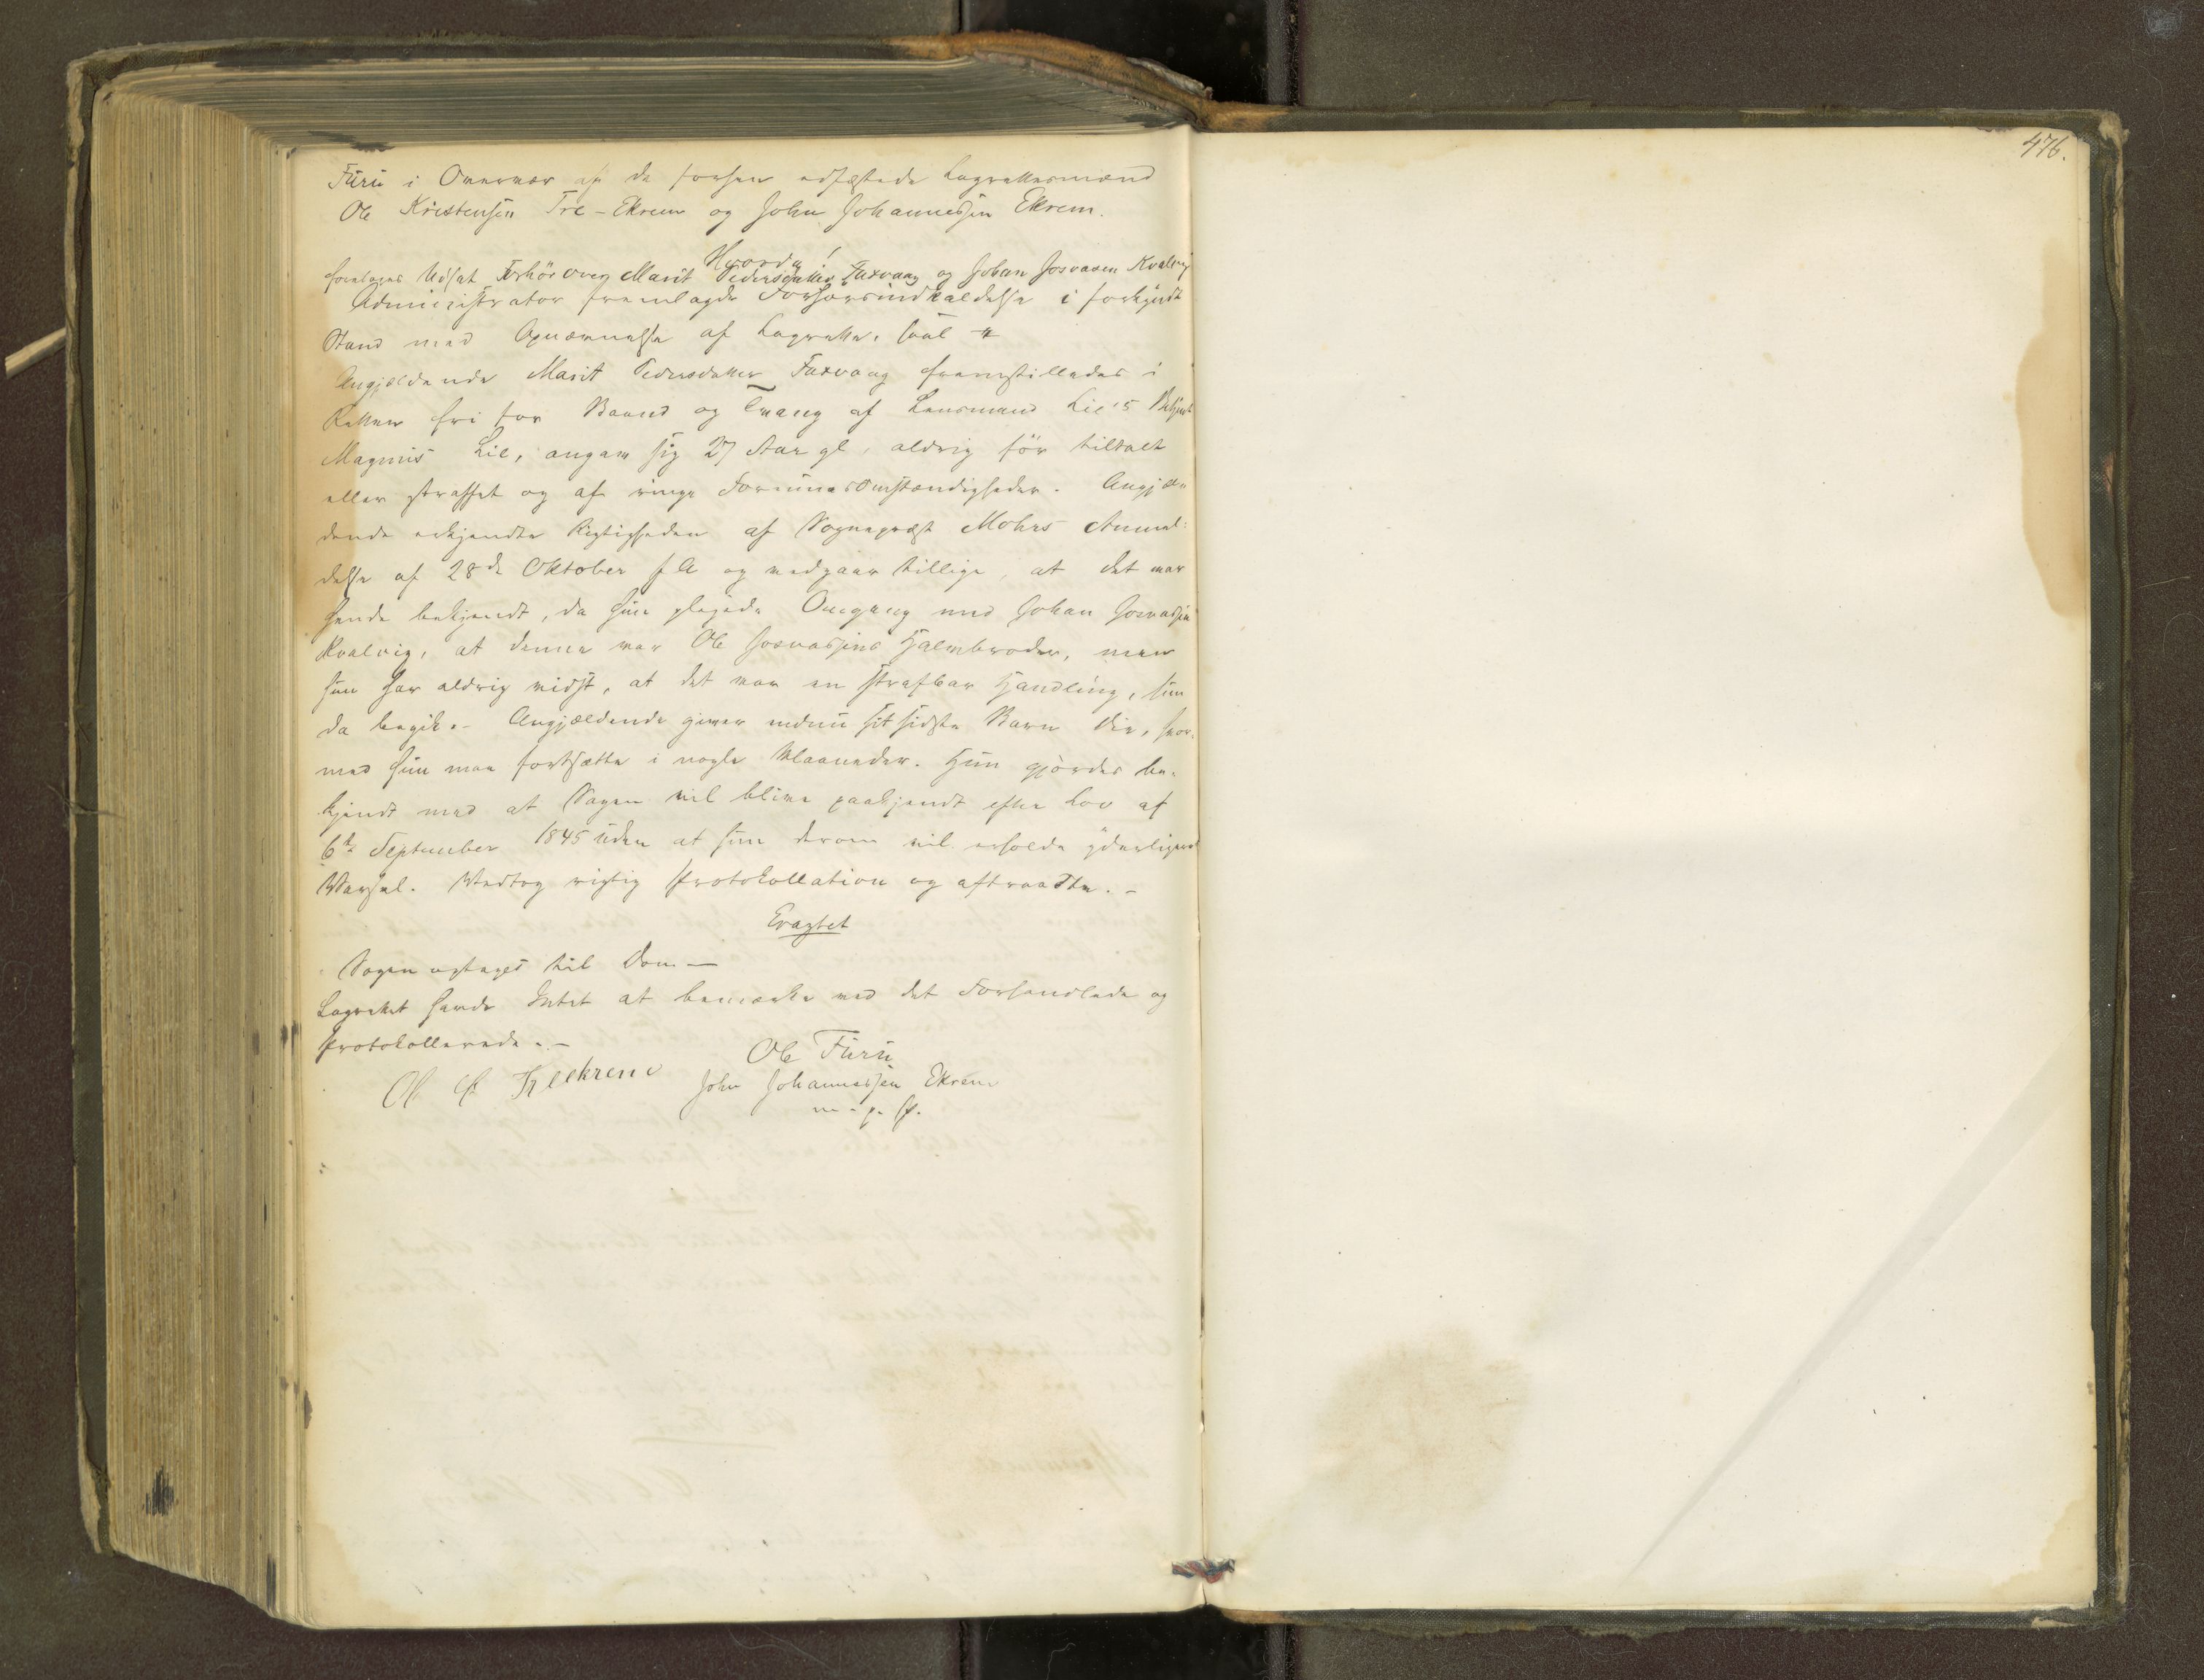 476.
Furu i Overvær af de forhen edfæstede Lagrettesmænd
Ole Kristensen Tre-Ekrem og John Johannessen Ekrem.
Hvorda!
foretages Udsat Forhör over Marit Pedersdatter Faxvaag og Johan Josvasen Kvalvig
Administrator fremlagde Forhørsindkaldelse i forkyndt
Stand med Opnævnelse af Lagrette.
Angjældende Marit Pedersdatter Faxvaag fremstilledes i
Retten fri for Baand og Tvang af Lensmand Lie's
Magnus Lie, angav sig 27 Aar gl, aldrig för tiltalt
eller straffet og af ringe Formuesomstændigheder. Angjæl-
dende erkjendte Rigtigheden af Sognepræst Mohrs Anmel-
delse af 28de Oktober f A og vedgaar tillige, at det var
hende bekjendt, da hun plejede Omgang med Johan Josvassen
Kvalvig, at denne var Ole Josvassens Halvbroder, men
hun har aldrig vidst, at det var en strafbar Handling, hun
da begik. - Angjældende giver endnu sit sidste Barn Die, hvor-
med hun maa fortsætte i nogle Maaneder. Hun gjördes be-
kjendt med at Sagen vil blive paakjendt efter Lov af
6te September 1845 uden at hun derom vil erholde yderligere
Varsel. Vedtog rigtig Protokollation og aftraadte. -
Eragtet
Sagen optages til Dom -
Lagrettet havde Intet at bemærke ved det Forhandlede og
Protokollerede. -
Ole Furu
Ole K Treekrem John Johannessen Ekrem
m. p. P.